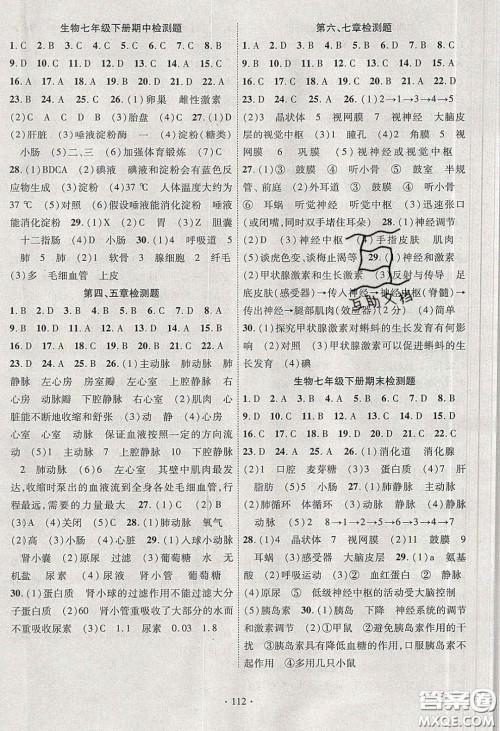 生物七年级下册期中检测题
1. C 2. C 3. B 4. D 5. C 6. C 7. D 8. B
9. D 10. C 11. B 12. C 13. C 14. B 15. A
16. A 17. D 18. D 19. C 20. A 21. A 22. A
23. B 24. A 25. C 26. (1)卵巢 雌性激素
(2)C (3)胎盘 (4)C 27. (1)A 唾液
(2)肝脏 (3)唾液淀粉酶 (4)淀粉(糖类)
小肠 (5)二、三 (6)加强体育锻炼
28. (1)BDCA (2)碘液 碘液和淀粉会有蓝色反
应物生成 (3)探究 (4)37 ℃ 人体温度大约为
37 ℃ (5)对照 (6)假设唾液能消化淀粉 唾液
能消化淀粉 29. (1)C (2)Z (3)E 胆囊
十二指肠 (4)小肠 30. (1)呼吸道 ④
肺 肺 (2)1 软骨 ② 腺细胞 ② 纤毛
(3)③ 多 毛细血管 上皮
第四、五章检测题
1. B 2. D 3. D 4. A 5. D 6. C 7. D 8. B
9. B 10. D 11. B 12. D 13. D 14. C 15. B
16. D 17. A 18. C 19. A 20. C 21. D 22. C
23. B 24. D 25. B 26. (1)主动脉 肺动脉 肺
静脉 左心房 房室瓣 左心室 上腔静脉 下
腔静脉 右心房 右心室 (2)左心室 肌肉 心
脏能不断地收缩和舒张 (3)主动脉 左心房
右心室 动脉 保证血液按照一定的方向流动
2 肺动脉 (4)2 左心室 其壁中肌肉最发
达,收缩时泵出的血液流到全身各处毛细血管,行
程最远 (5)D 27. (1)B (2)左心室 主动脉
(3)C (4)关闭 (5)C 28. (1)肺动脉 氧气
(2)D (3)A (4)B 29. (1)入球小动脉
肾小囊 (2)原尿 过滤 (3)葡萄糖 水 无
机盐 尿素 (4)肾小管 葡萄糖
30. (1)蛋白质 肾小球的过滤作用不能过滤大分
子蛋白质 (2)60 肾小管重吸收了大部分水
而不重吸收尿素 (3)1 尿素 0.03 1.8
第六、七章检测题
1. C 2. A 3. C 4. D 5. C 6. C 7. D 8. A
9. D 10. B 11. D 12. A 13. C 14. D 15. D
16. C 17. A 18. B 19. A 20. D 21. C 22. A
23. D 24. D 25. C 26. (1)2→1→3→4→5
(2)3 晶状体 5 视网膜 (3)视神经 大脑皮
层的视觉中枢 (3)1 瞳孔 (4)2 角膜 3
晶状体 5 视网膜 (5)④视神经或视觉中枢
27. (1)① 鼓膜 ② 听小骨 ③ 鼓室 半规
管、前庭 ④ 耳蜗 (2)① 鼓膜 ② 听小骨
⑧ 耳蜗 听觉中枢 (3)⑤ 咽鼓管 迅速张口
(或闭嘴,同时双手堵住耳朵) 28. (1)神经调节
大脑皮层 (2)神经中枢 (4)手指皮肤 肌肉
(5)谈虎色变(谈梅止渴等) 29. (1)神经和激素
(2)甲状腺激素和肾上腺素 (3)反射与传导
足底皮肤(感受器)→传入神经→神经中枢(脊髓)→
传出神经→腿部肌肉(效应器)(2分)
30. (1)探究甲状腺激素对蝌蚪的生长发育有何影
响 (2)对照 (3)甲状腺激素可以促进蝌蚪的
生长发育 (4)碘
生物七年级下册期末检测题
1. D 2. D 3. B 4. D 5. C 6. C 7. D 8. A
9. C 10. B 11. D 12. C 13. A 14. A 15. B
16. C 17. D 18. D 19. B 20. D 21. C 22. C
23. D 24. D 25. D 26. (1)消化道 消化腺
(2)1 口腔 麦芽糖 (3)3 蛋白质 (4)7 肝
脏 脂肪 (5)5 小肠 27. (1)C 静脉
(2)肺循环 体循环 (4)5→8→1→6→7
28. (1)② 晶状体 ④ 视网膜 (2)⑧ 鼓膜
⑪ 耳蜗 (3)感受器 大脑皮层 29. (1)a 氨基
酸 (2)呼吸运动 ② ③ 血红蛋白 (3)静脉
d 原尿 (4)低级神经中枢的活动受大脑控制
30. (1)胰岛素 (2)胰岛 下降 神经系统的调节
和激素调节 (3)①甲鼠 ②避免胰岛素作用的干
扰 ③胰岛素(口服)会被消化而不能对血糖浓度
起作用 ④多用几只小鼠
互助文档
· 112 ·
答案圈
MXQE.COM